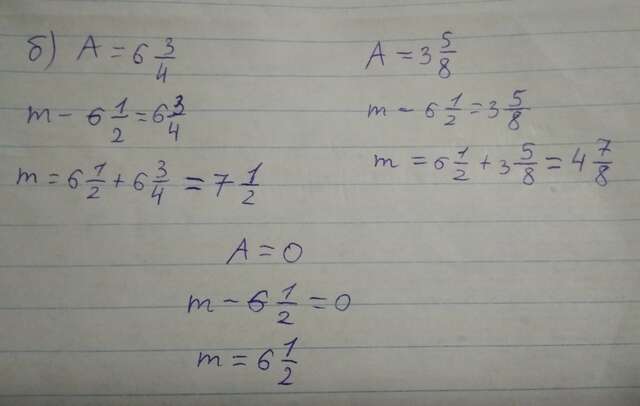 б) A = 6 3/4
m - 6 1/2 = 6 3/4
m = 6 1/2 + 6 3/4 = 7 1/2
A = 3 5/8
m - 6 1/2 = 3 5/8
m = 6 1/2 + 3 5/8 = 4 7/8
A = 0
m - 6 1/2 = 0
m = 6 1/2